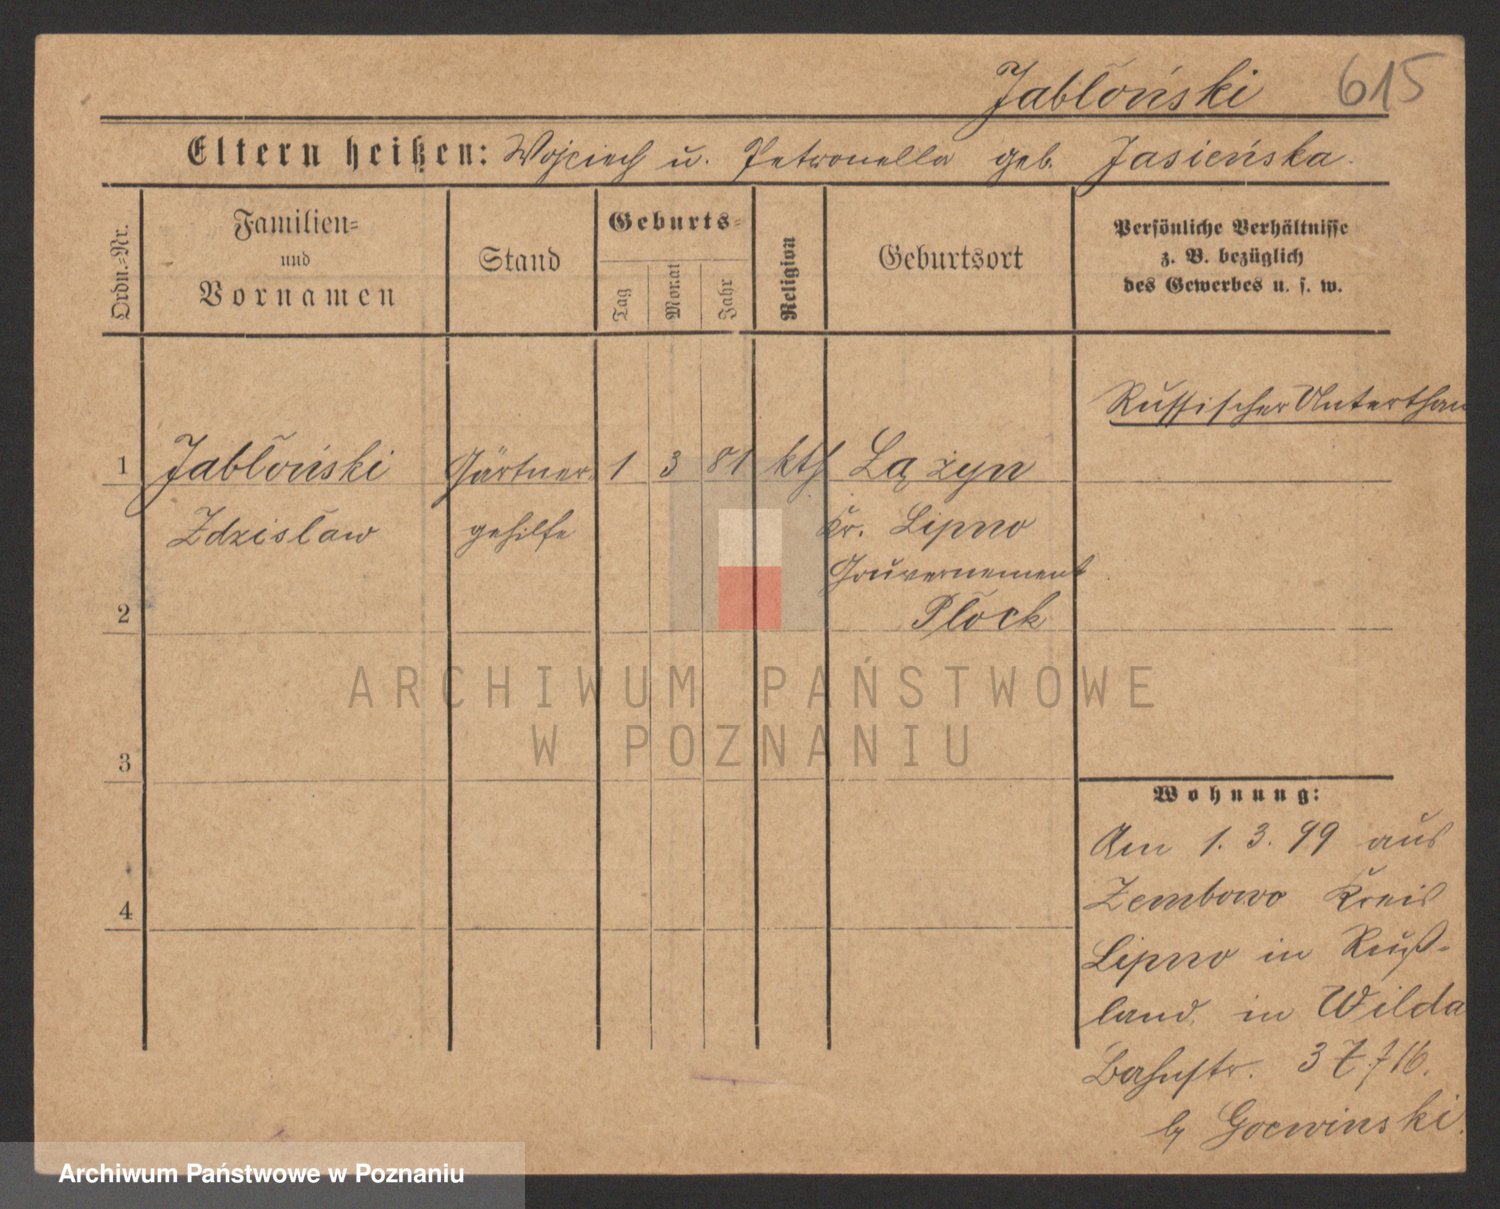 Jabłoński 615
Eltern heißen: Wojciech u. Petronella geb. Jasieńska.
Ordn.-Nr.
Familien- und Vornamen
Stand
Geburts-
Tag
Monat
Jahr
Religion
Geburtsort
Persönliche Verhältnisse
z. B. bezüglich
des Gewerbes u. s. w.
Russischer Unterthan
1 Jabłoński Gärtner- 1 3 81 kth Łążyn
Zdzisław gehilfe Kr. Lipno
Gouvernement
2 Płock
ARCHIWUM PAŃSTWOWE
W POZNANIU
3
Wohnung:
Am 1. 3. 99 aus
4 Zembowo Kreis
Lipno in Ruß-
land in Wilda
Bahnstr. 37
b/ Gocwinski.
Archiwum Państwowe w Poznaniu